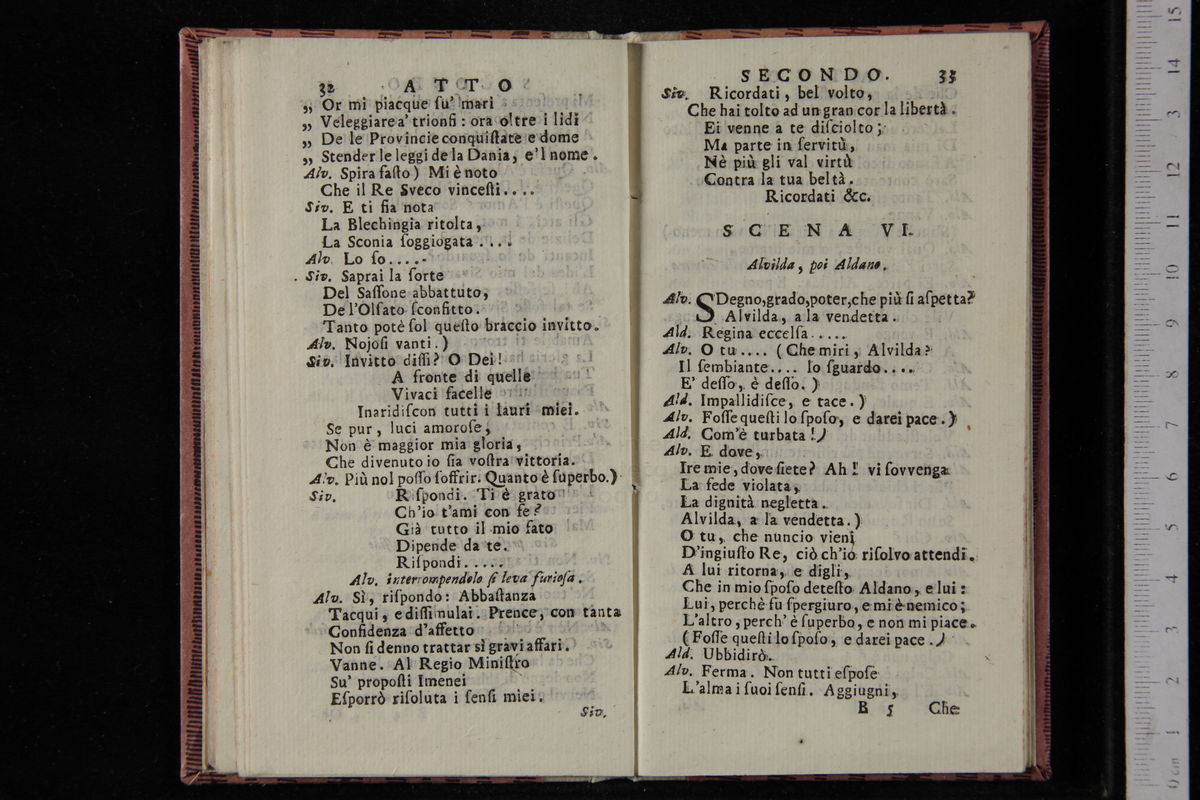 32 ATTO
„ Or mi piacque ſu' mari
„ Veleggiare a' trionfi : ora oltre i lidi
„ De le Provincie conquiſtate e dome
„ Stender le leggi de la Dania, e'l nome.
Alv. Spira faſto) Mi è noto
Che il Re Sveco vinceſti....
Siv. E ti ſia nota
La Blechingia ritolta,
La Sconia ſoggiogata ....
Alv. Lo ſo.....
Siv. Saprai la forte
Del Saſſone abbattuto,
De l'Olſato ſconfitto.
Tanto potè ſol queſto braccio invitto.
Alv. Nojoſi vanti.)
Siv. Invitto diſſi? O Dei!
A fronte di quelle
Vivaci facelle
Inaridiſcon tutti i lauri miei.
Se pur, luci amoroſe,
Non è maggior mia gloria,
Che divenuto io ſia voſtra vittoria.
Alv. Più nol poſſo ſoffrir. Quanto è ſuperbo.)
Siv. Riſpondi. Ti è grato
Ch'io t'ami con fe?
Già tutto il mio fato
Dipende da te.
Riſpondi.....
Alv. interrompendolo ſi leva furioſa.
Alv. Sì, riſpondo: Abbaſtanza
Tacqui, e diſſimulai. Prence, con tanta
Confidenza d'affetto
Non ſi denno trattar sì gravi affari.
Vanne. Al Regio Miniſtro
Su' propoſti Imenei
Eſporrò riſoluta i ſenſi miei.
Siv.
SECONDO. 33
Siv. Ricordati, bel volto,
Che hai tolto ad un gran cor la libertà.
Ei venne a te diſciolto;
Ma parte in ſervitù,
Nè più gli val virtù
Contra la tua beltà.
Ricordati &c.
SCENA VI.
Alvilda, poi Aldano.
Alv. SDegno, grado, poter, che più ſi aſpetta?
Alvilda, a la vendetta.
Ald. Regina eccelſa.....
Alv. O tu.... (Che miri, Alvilda?
Il ſembiante.... lo ſguardo....
E' deſſo, è deſſo.)
Ald. Impallidiſce, e tace.)
Alv. Foſſe queſti lo ſpoſo, e darei pace.)
Ald. Com'è turbata!)
Alv. E dove,
Ire mie, dove ſiete? Ah! vi ſovvenga
La fede violata,
La dignità negletta.
Alvilda, a la vendetta.)
O tu, che nuncio vieni
D'ingiuſto Re, ciò ch'io riſolvo attendi.
A lui ritorna, e digli,
Che in mio ſpoſo deteſto Aldano, e lui:
Lui, perchè fu ſpergiuro, e mi è nemico;
L'altro, perch' è ſuperbo, e non mi piace.
(Foſſe queſti lo ſpoſo, e darei pace.)
Ald. Ubbidirò.
Alv. Ferma. Non tutti eſpoſe
L'alma i ſuoi ſenſi. Aggiugni,
B 5 Che
0 cm 1 2 3 4 5 6 7 8 9 10 11 12 13 14 15